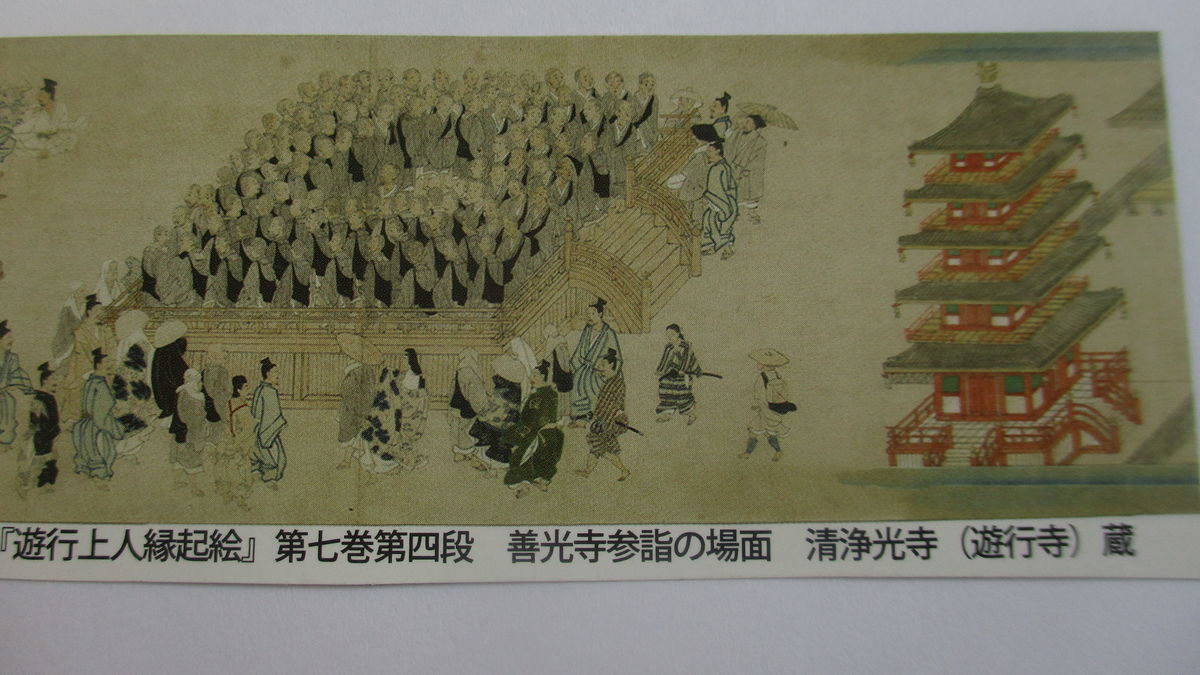 『遊行上人縁起絵』第七巻第四段　善光寺参詣の場面　清浄光寺（遊行寺）蔵